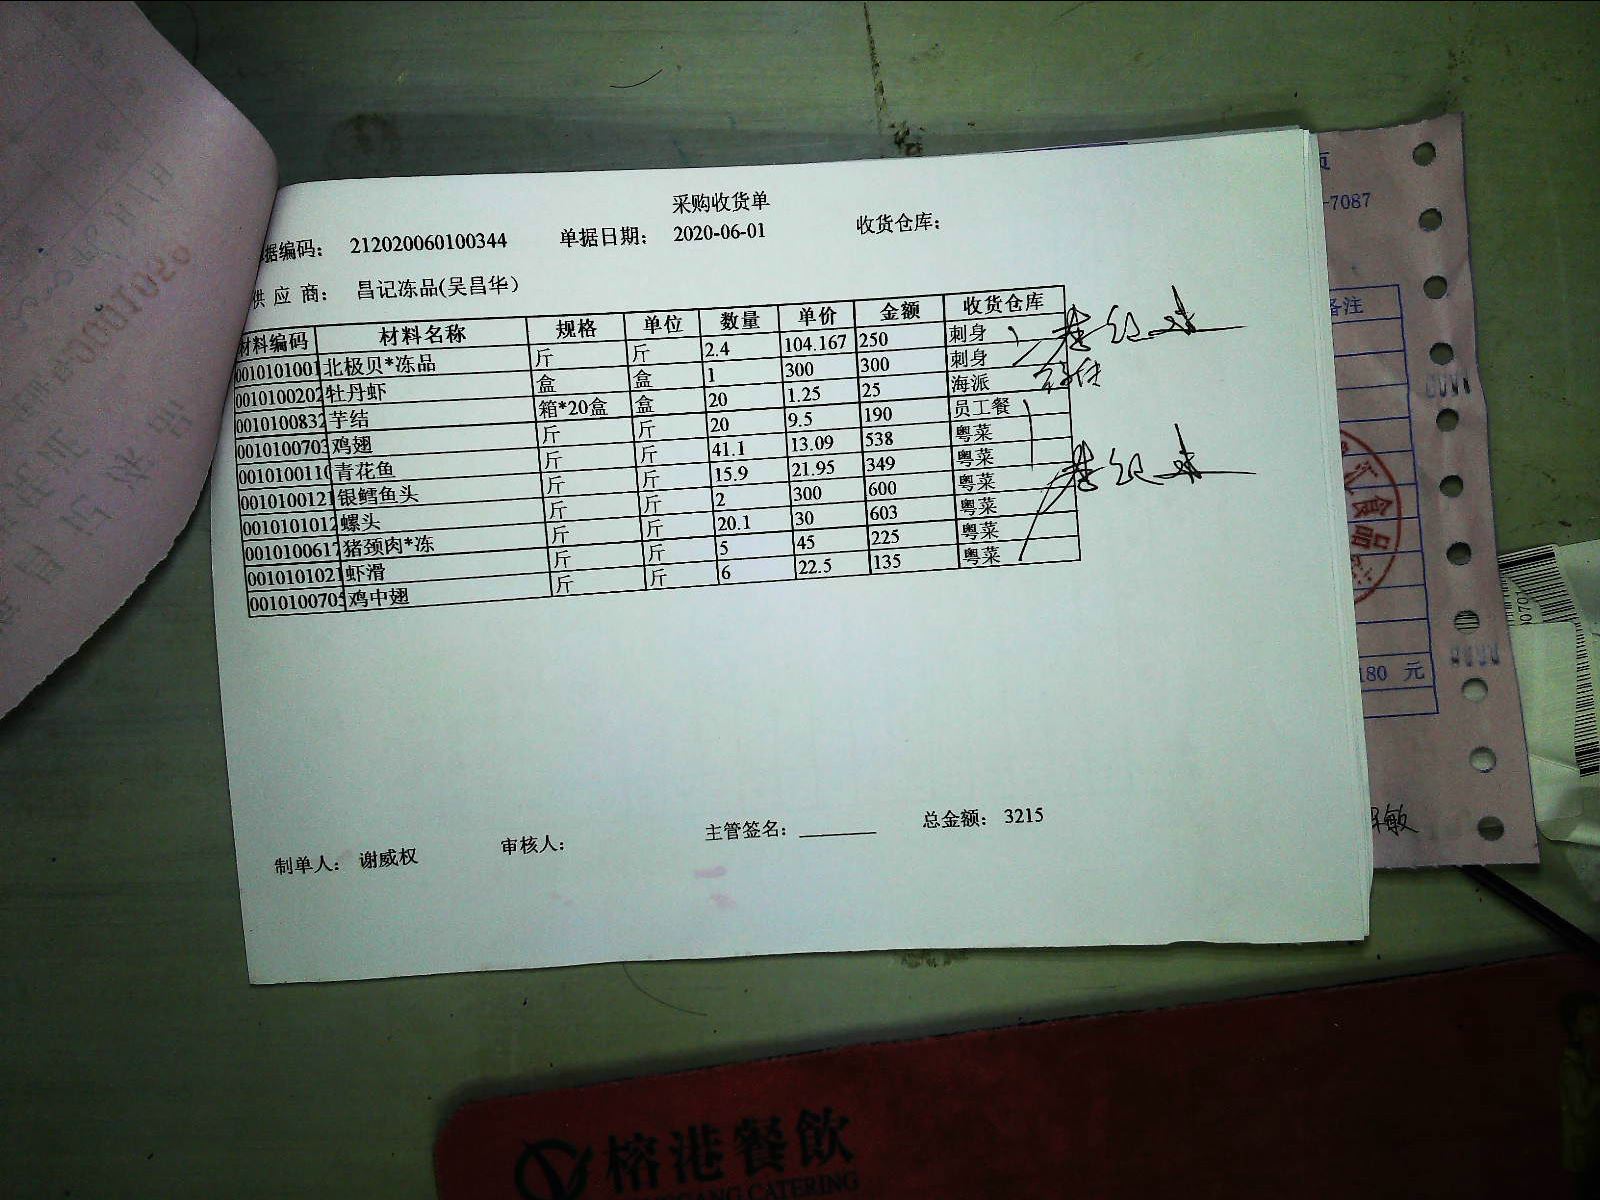 采购收货单
据编码: 212020060100344 单据日期: 2020-06-01 收货仓库:
供应商: 昌记冻品(吴昌华)
材料编码 材料名称 规格 单位 数量 单价 金额 收货仓库
0010101001 北极贝*冻品 斤 斤 2.4 104.167 250 刺身
0010100202 牡丹虾 盒 盒 1 300 300 刺身
0010100832 芋结 箱*20盒 盒 20 1.25 25 海派
0010100703 鸡翅 斤 斤 20 9.5 190 员工餐
0010100110 青花鱼 斤 斤 41.1 13.09 538 粤菜
0010100121 银鳕鱼头 斤 斤 15.9 21.95 349 粤菜
0010101012 螺头 斤 斤 2 300 600 粤菜
0010100617 猪颈肉*冻 斤 斤 20.1 30 603 粤菜
0010101021 虾滑 斤 斤 5 45 225 粤菜
0010100705 鸡中翅 斤 斤 6 22.5 135 粤菜
制单人: 谢威权 审核人: 主管签名: 总金额: 3215
页
-7087
备注
汇食品
180 元
敏
榕港餐飲
CATERING